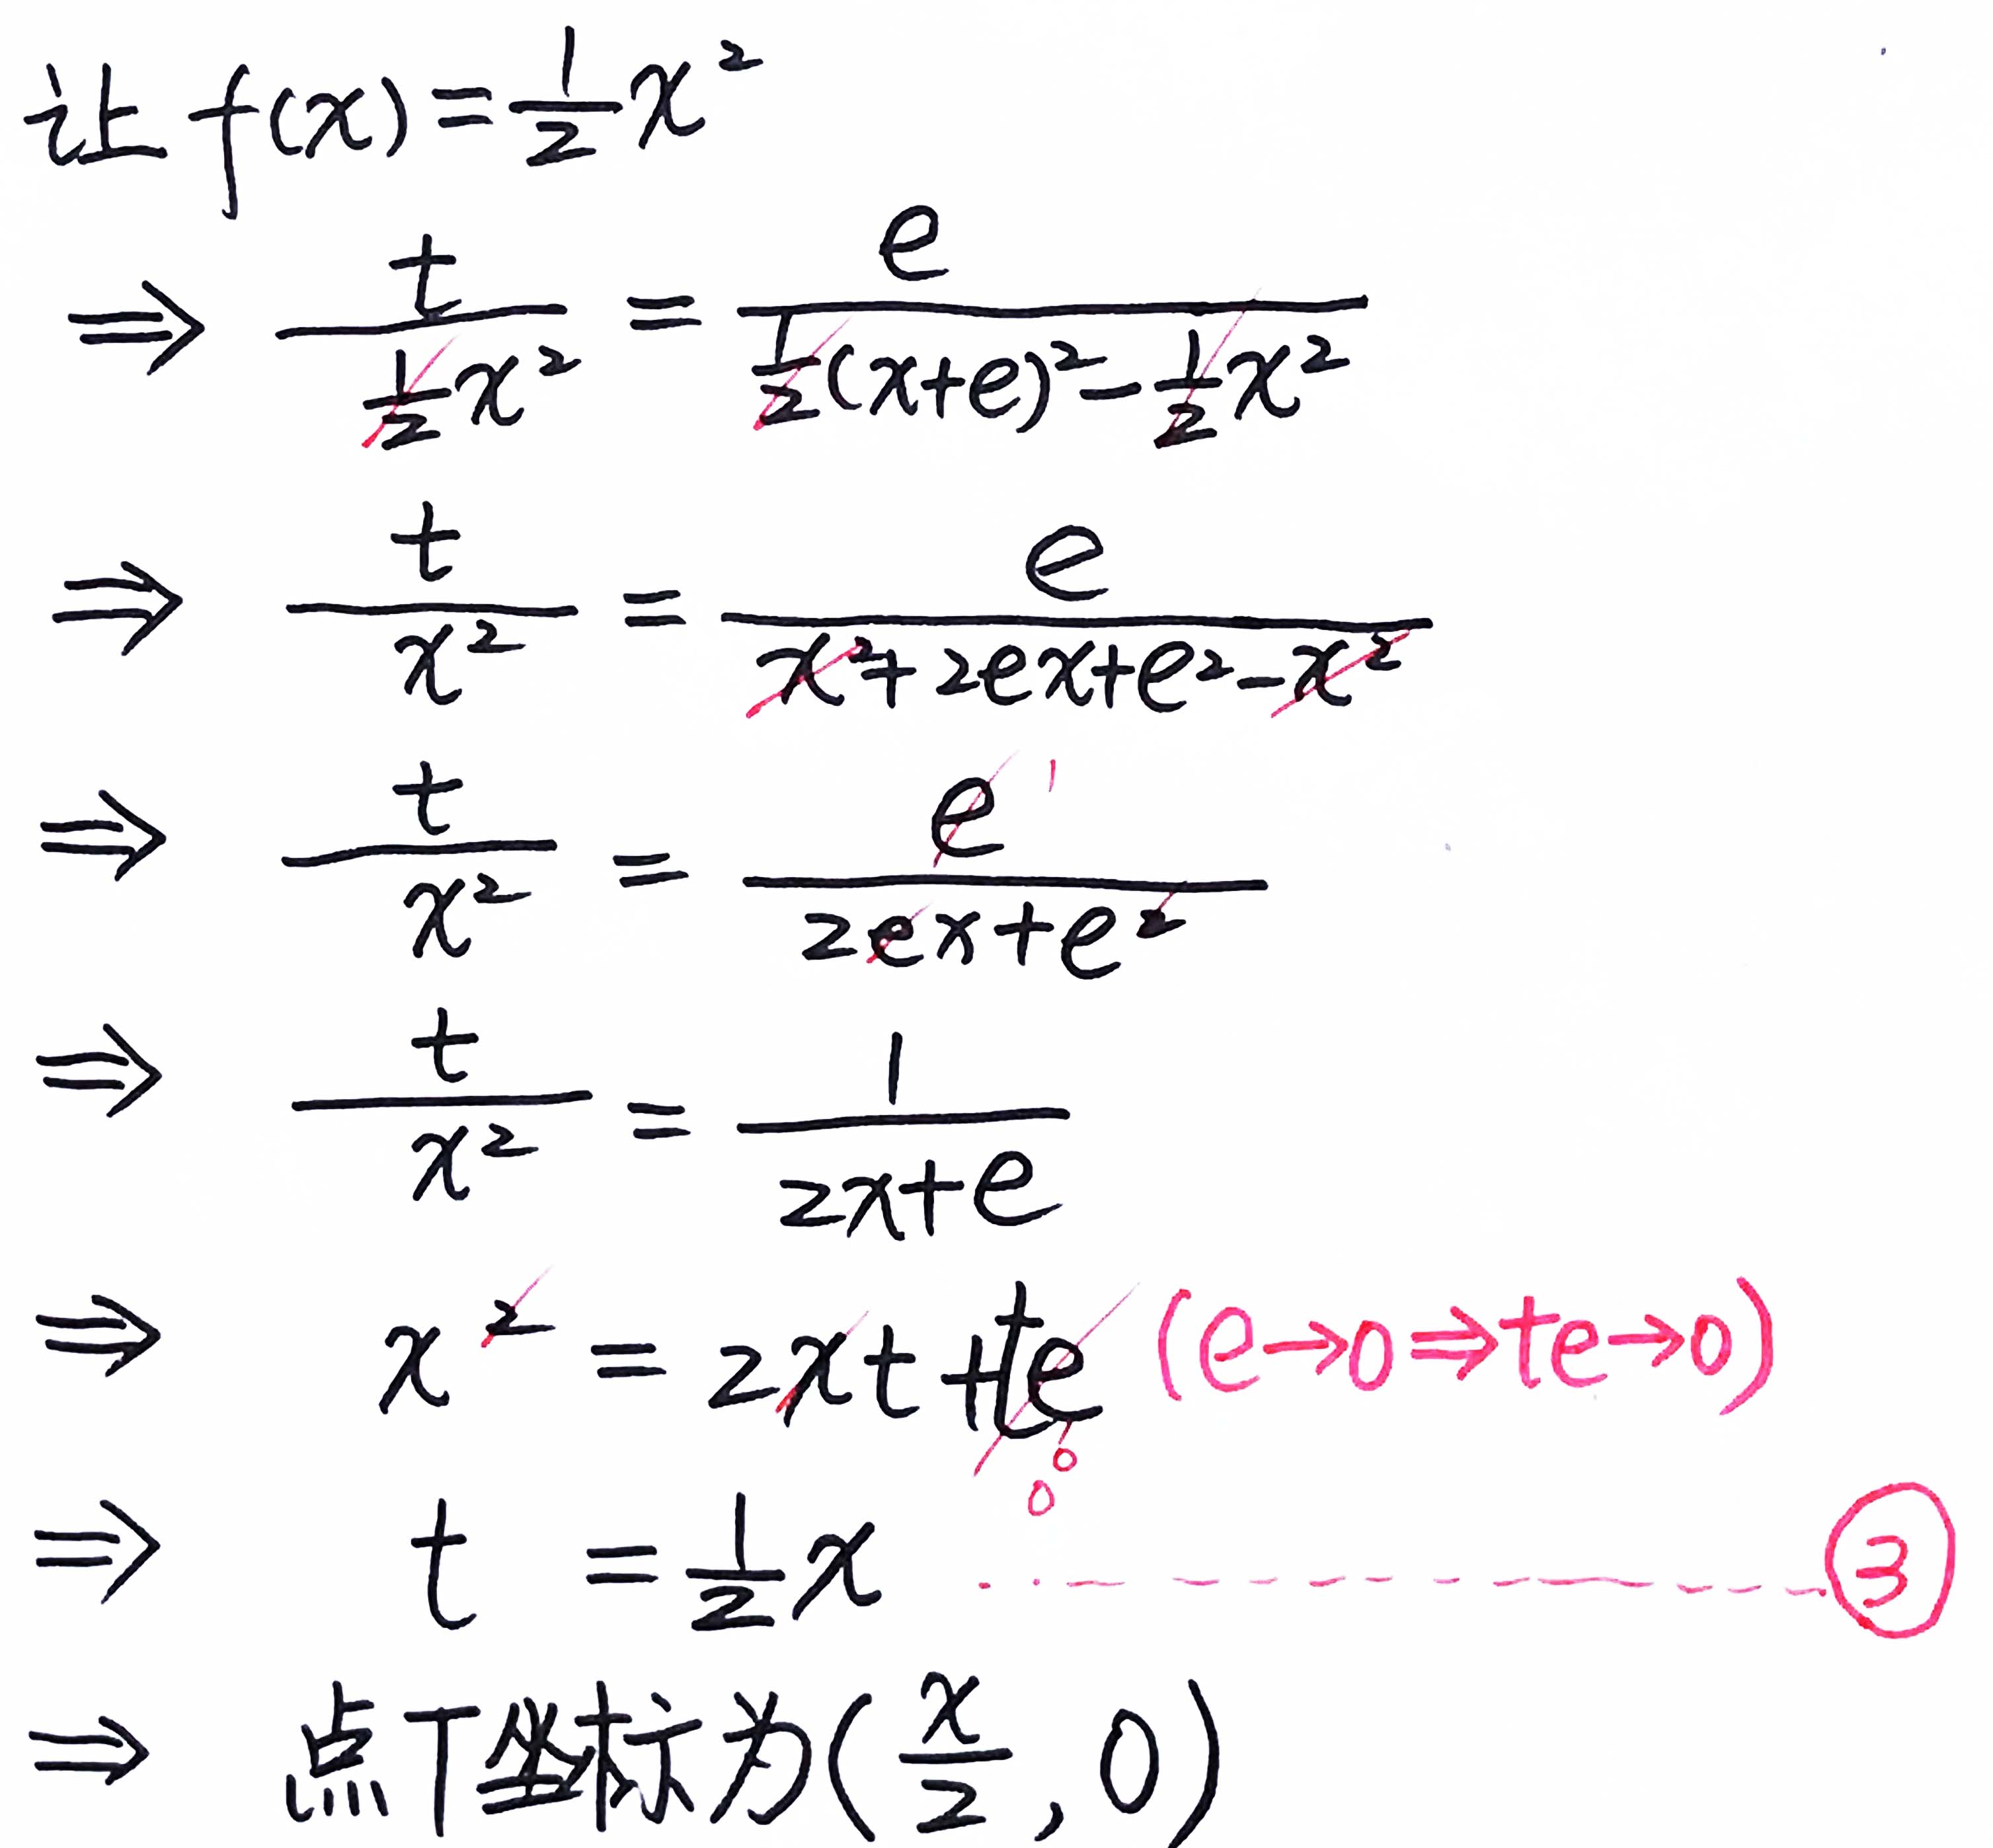 让 f(x)=½x²
⇒ t/(½x²) = e/(½(x+e)²-½x²)
⇒ t/x² = e/(x²+2ex+e²-x²)
⇒ t/x² = e/(2ex+e²) 1
⇒ t/x² = 1/(2x+e)
⇒ x² = 2xt+te (e→0⇒te→0)
0
0
⇒ t = ½x ------------ ③
⇒ 点T坐标为(x/2, 0)